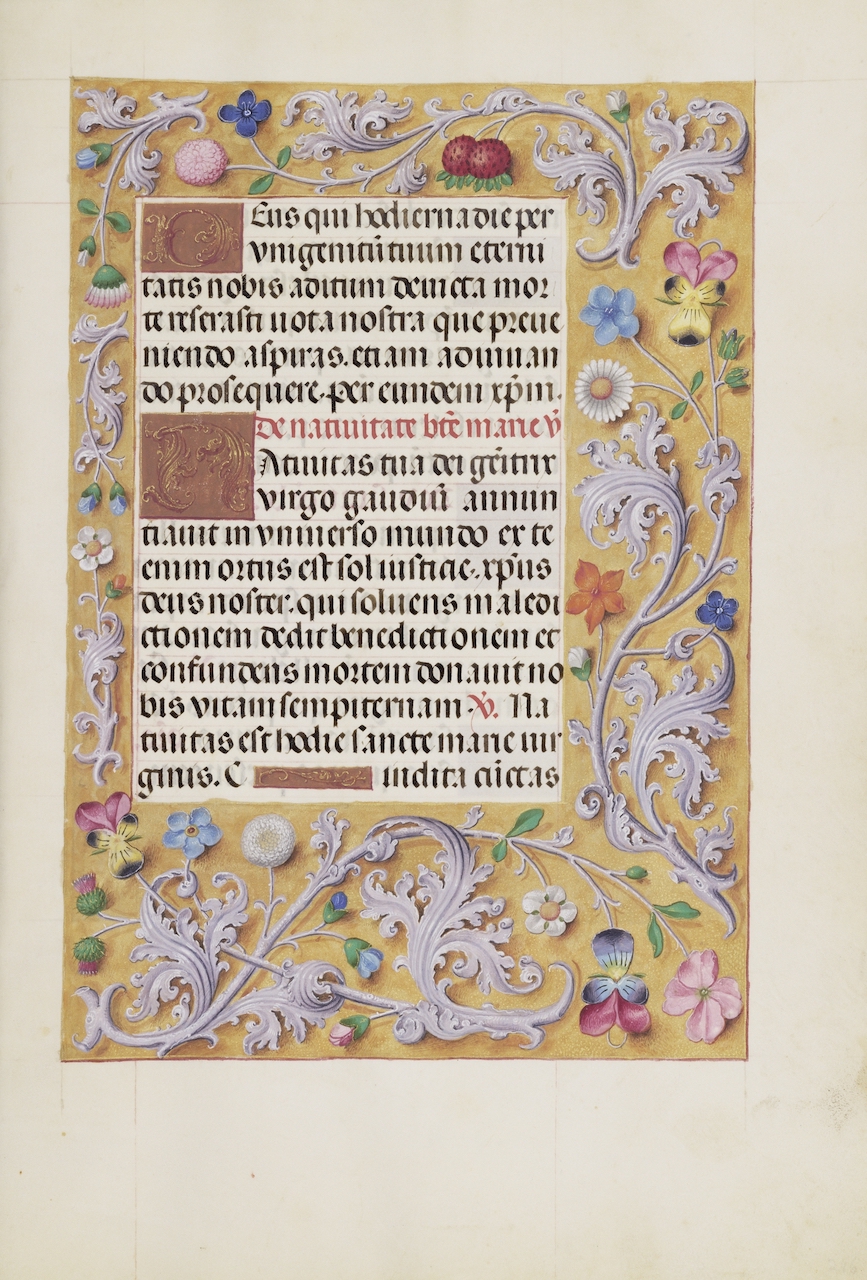 Deus qui hodierna die per
vnigenitū tuum eterni
tatis nobis aditum deuicta mor
te reserasti uota nostra que preue
niendo aspiras. etiam adiuuan
do prosequere. per eundem xp̄m.
De natiuitate btē marie v̄
Natiuitas tua dei gēitrix
virgo gaudiū annun
tiauit in vniuerso mundo ex te
enim ortus est sol iusticie. xp̄us
deus noster. qui soluens maledi
ctionem dedit benedictionem et
confundens mortem donauit no
bis vitam sempiternam. v̄. Na
tiuitas est hodie sancte marie uir
ginis. C indita cūctas